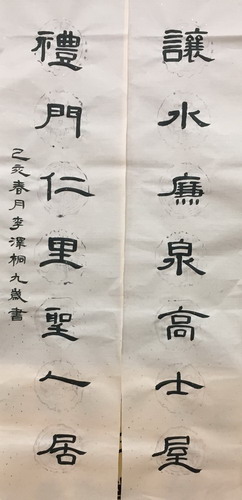 讓水廉泉高士屋
禮門仁里聖人居
己亥春月李澤桐九歲書